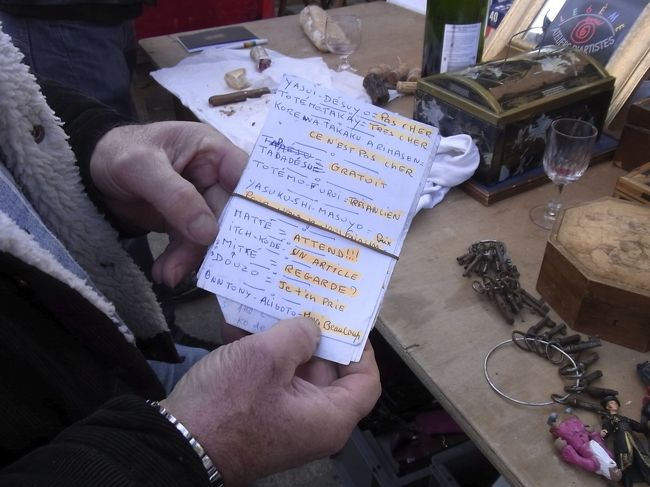 YASUI-DESUYO = PAS CHER
TOTEMOTAKAY = TRES CHER
KOREWA TAKAKU ARIMASEN =
CE N'EST PAS CHER
TADADESU = GRATUIT
TOTEMO-FURUI = TRES ANCIEN
YASUKUSHI-MASUYO = Prix
MATTÉ = ATTEND!!!
ITCH-KODÉ = UN ARTICLE
MITÉ = REGARDE?
DOUZO = Je t'en PRIE
DONTONY-ALIGOTO = Merci BEAUCOUP
LEGEME
ATELIERS D'ARTISTES